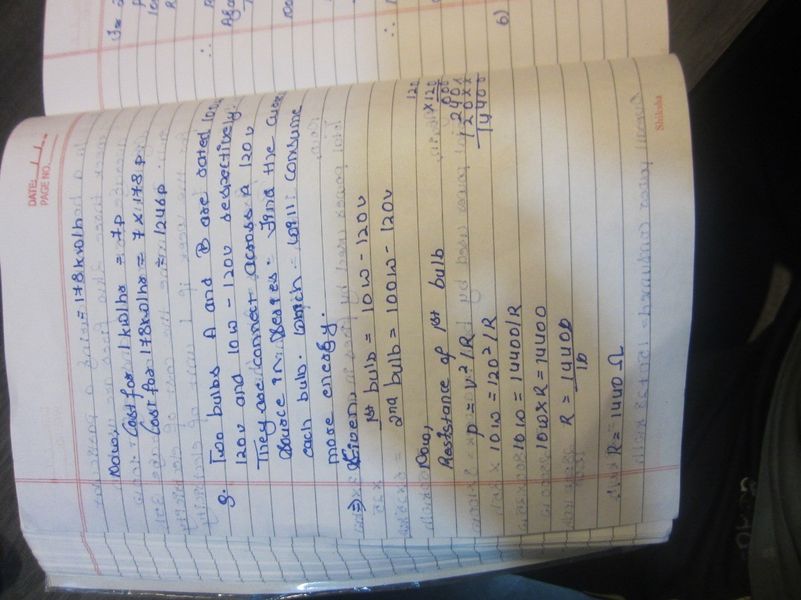 DATE:
PAGE NO.
= 178 kwhr
Now,
Cost for 1 kwhr = 7p
Cost for 178kwhr = 7 x 178 p
= 1246p
9. Two bulbs A and B are rated 100w
120v and 10w - 120v respectively.
They are connect across a 120v
source in series. Find the
each bulb. Which will consume
more energy.
=) Given,
1st bulb = 10w - 120v
2nd bulb = 100w - 120v
Now,
Resistance of 1st bulb
P = V²/R
10w = 120²/R
10w = 14400/R
10w x R = 14400
R = 14400
10
R = 1440 Ω
120
x 120
000
240x
120xx
14400
Shiksha
b)